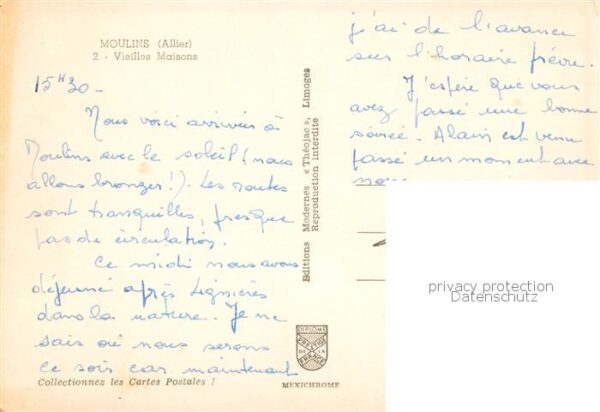 MOULINS (Allier)
2 - Vieilles Maisons
15H30 -
Nous voici arrivées à
Moulins avec le soleil (nous
allons bronger !). Les routes
sont tranquilles, presque
pas de circulation.
Ce midi nous avons
déjeuné après Lignières
dans la nature. Je ne
sais où nous serons
ce soir car maintenant
Collectionnez les Cartes Postales !
Editions Modernes « Théojac », Limoges
Reproduction interdite
DIPLOME
PRESTIGE
DE LA
FRANCE
MEXICHROME
j'ai de l'avance
sur l'horaire prévu.
J'espère que vous
avez passé une bonne
soirée. Alain est venu
passé un moment avec
nous
privacy protection
Datenschutz